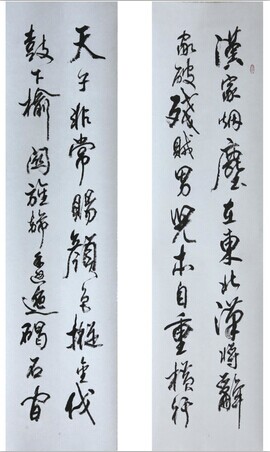 漢家烟塵在東北漢將辭
家破殘賊男兒本自重橫行
天子非常賜顏色摐金伐
鼓下榆關旌旆逶迤碣石間